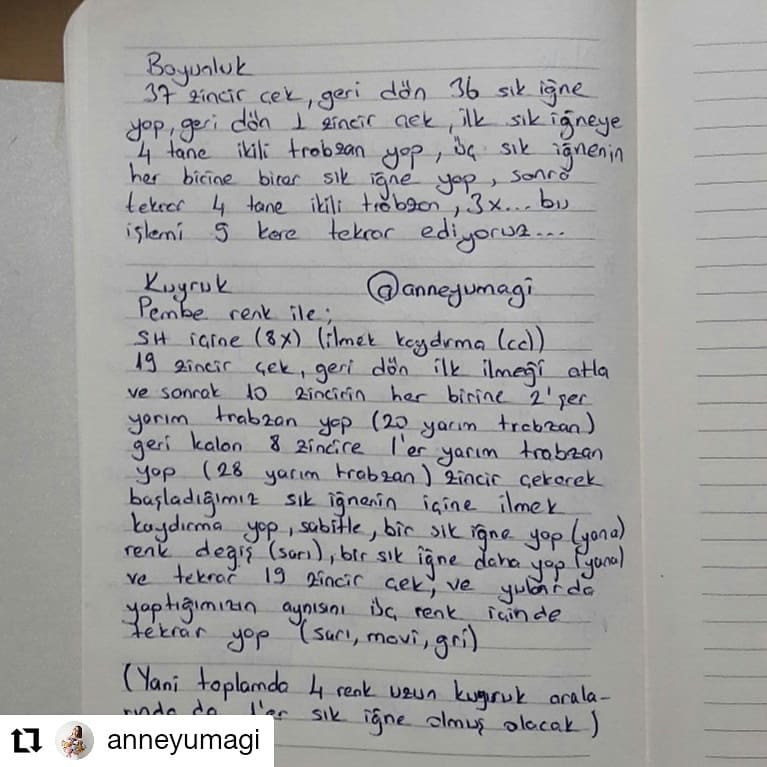 Boyunluk
37 zincir çek, geri dön 36 sık iğne
yap, geri dön 1 zincir çek, ilk sık iğneye
4 tane ikili trabzan yap, üç sık iğnenin
her birine birer sık iğne yap, sonra
tekrar 4 tane ikili trabzan, 3x... bu
işlemi 9 kere tekrar ediyoruz...
Kuyruk @anneyumagi
Pembe renk ile;
SH içine (8x) (ilmek kaydırma (cc))
19 zincir çek, geri dön ilk ilmeği atla
ve sonrak 10 zincirin her birine 2'şer
yarım trabzan yap (20 yarım trabzan)
geri kalan 8 zincire 1'er yarım trabzan
yap (28 yarım trabzan) zincir çekerek
başladığımız sık iğnenin içine ilmek
kaydırma yap, sabitle, bir sık iğne yap (yana)
renk değiş (sarı), bir sık iğne daha yap (yana)
ve tekrar 19 zincir çek, ve yukarıda
yaptığımızın aynısını üç renk içinde
tekrar yap (sarı, mavi, gri)
(Yani toplamda 4 renk uzun kuyruk arala-
rında da 1'er sık iğne olmuş olacak)
anneyumagi